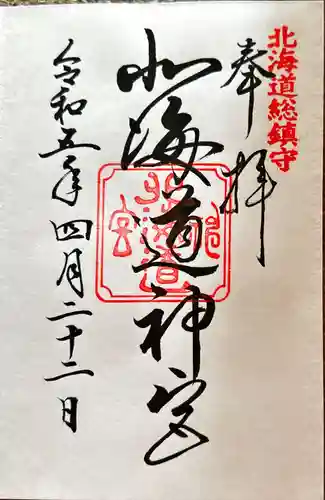 北海道総鎮守
奉拝
北海道神宮
北海道神宮
令和五年四月二十二日